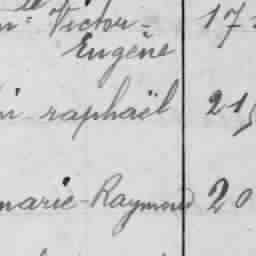 Victor-
Eugène 17
raphaël 21
marie-Raymond 20